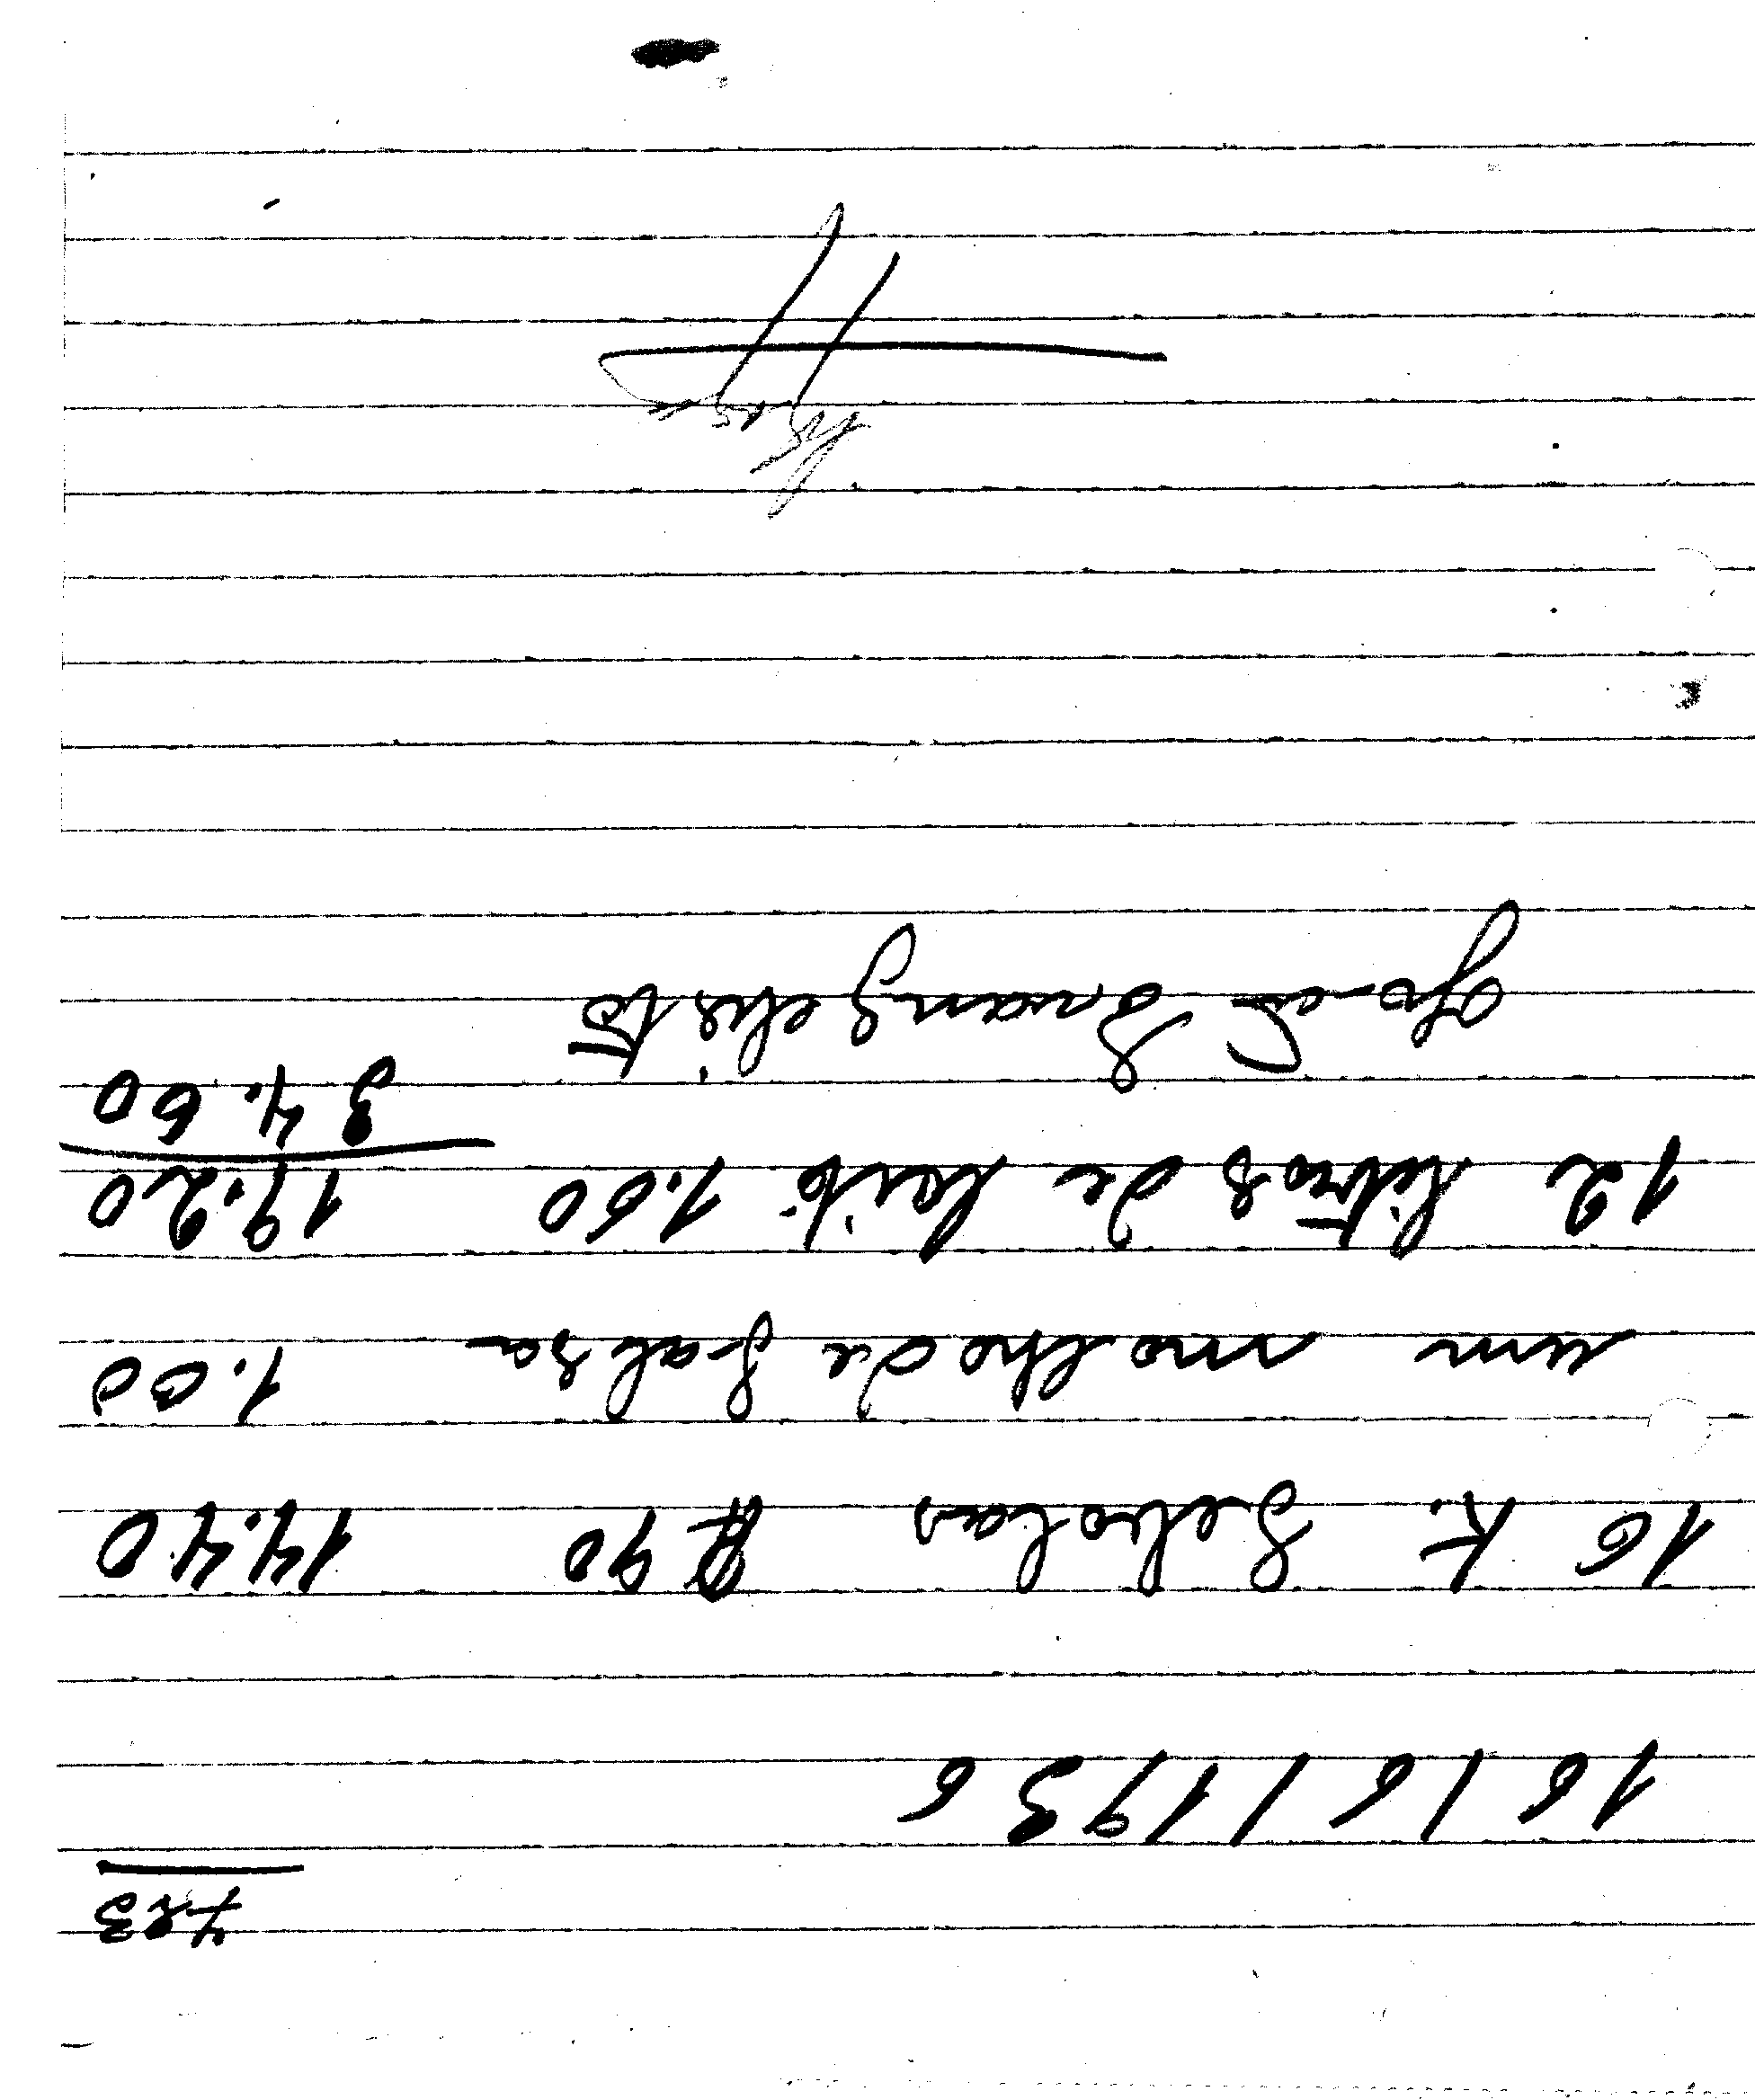 723
16/6/1936
16 K. Sebolas 90 14.40
um molho de salsa 1.00
12 litros de leite 1.60 19.20
34.60
Evangelista